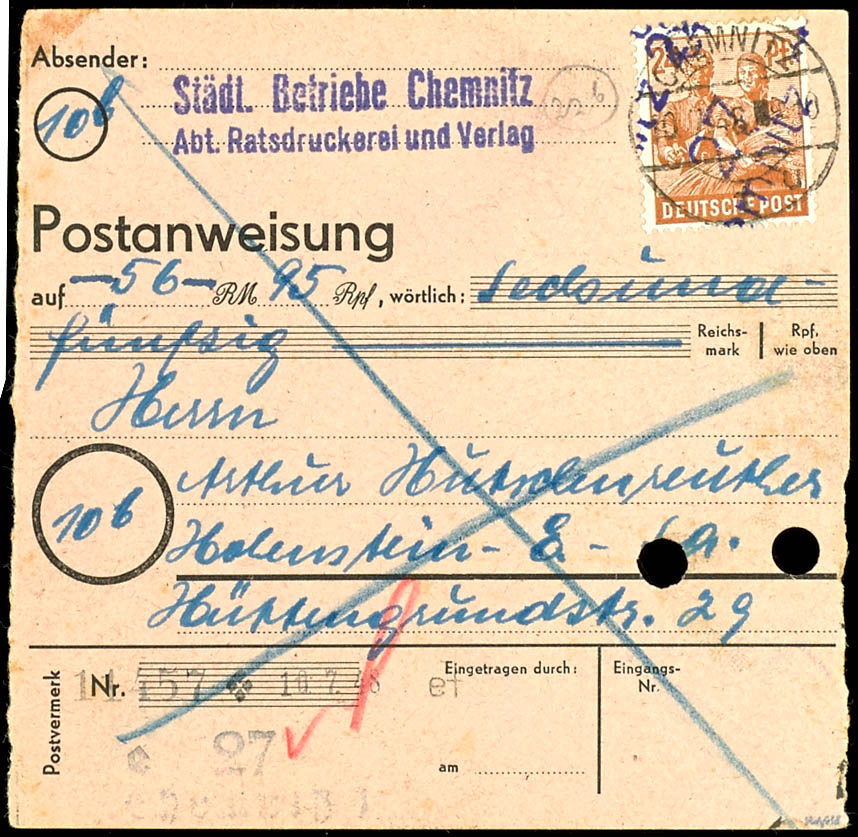 Absender:
10b
Städt. Betriebe Chemnitz
Abt. Ratsdruckerei und Verlag
22b
24 PF
CHEMNITZ
DEUTSCHE POST
Postanweisung
auf -56- RM 95 Rpf, wörtlich: Sechsund-
fünfzig Reichsmark | Rpf. wie oben
Herrn
10b
Arthur Hutschenreuther
Hohenstein-E.-
Hüttengrundstr. 29
Postvermerk
Nr. 11457 10 7. 48 ef
Eingetragen durch:
Eingangs-
Nr.
27
am